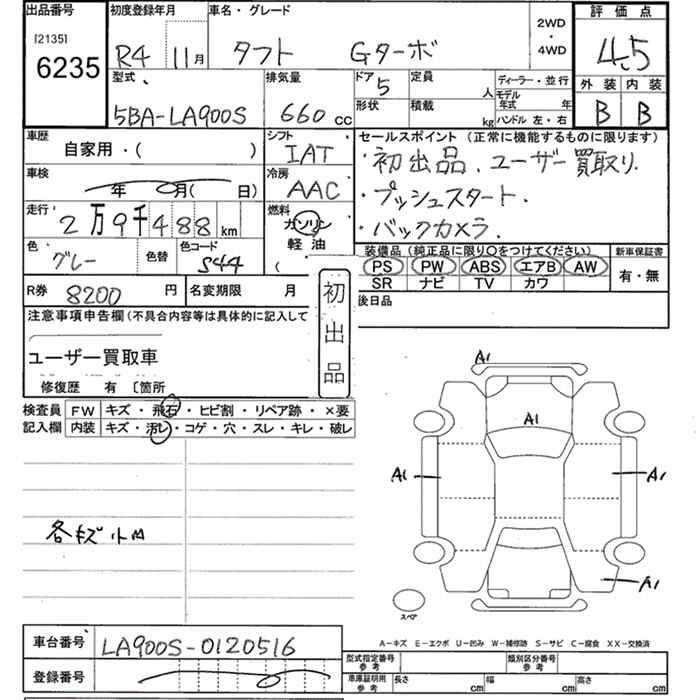 出品番号 初度登録年月 車名・グレード 2WD・4WD 評価点
[2135]
6235 R4 11月 タフト Gターボ 4.5
型式 排気量 ドア 5 定員 人 ディーラー・並行 外装 内装
5BA-LA900S 660 cc 形状 積載 kg モデル年式 年 B B
ハンドル 左・右
車歴 シフト セールスポイント (正常に機能するものに限ります)
自家用・( ) IAT ・初出品、ユーザー買取り.
車検 冷房
年 月( 日) AAC ・プッシュスタート.
走行 燃料
2万9千488km ガソリン ・バックカメラ.
軽油
(
色 色替 色コード 装備品(純正品に限り○をつけてください) 新車保証書
グレー S44 PS PW ABS エアB AW 有・無
SR ナビ TV カワ
R券 8200 円 名変期限 月 初出品 後日品
注意事項申告欄(不具合内容等は具体的に記入して
ユーザー買取車
修復歴 有 〔箇所
検査員 FW キズ・飛石・ヒビ割・リペア跡・×要
記入欄 内装 キズ・汚レ・コゲ・穴・スレ・キレ・破レ
A1
A1
A1 A1
各キズ小凹
A1
スペア
車台番号 LA900S-0120516
A-キズ E-エクボ U-凹み W-補修跡 S-サビ C-腐食 XX-交換済
登録番号
型式指定番号 参考 類別区分番号 参考
車庫証明用 参考 長さ cm 幅 cm 高さ cm